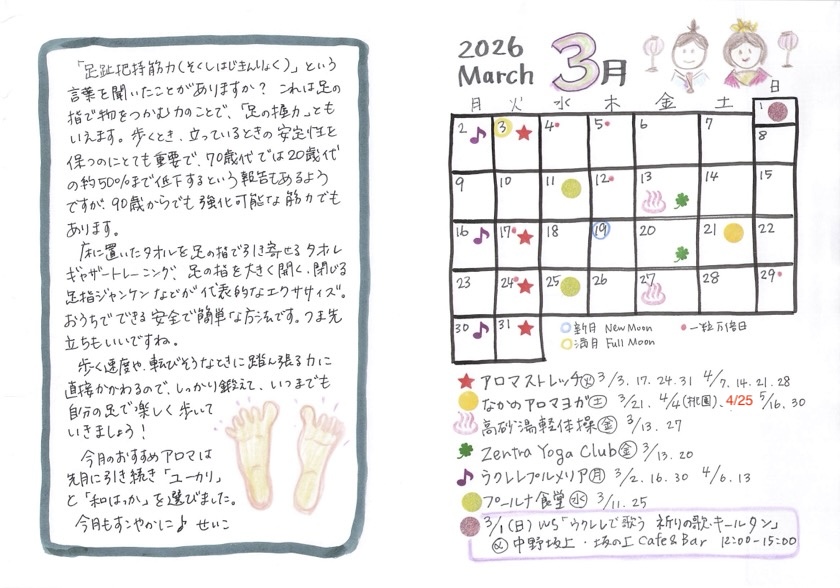 「足趾把持筋力(そくしはじきんりょく)」という
言葉を聞いたことがありますか? これは足の
指で物をつかむ力のことで、「足の握力」とも
いえます。歩くとき、立っているときの安定性を
保つのにとても重要で、70歳代では20歳代
の約50%まで低下するという報告もあるよう
ですが、90歳からでも強化可能な筋力でも
あります。
床に置いたタオルを足の指で引き寄せるタオル
ギャザートレーニング、足の指を大きく開く、閉じる
足指ジャンケンなどが代表的なエクササイズ。
おうちでできる安全で簡単な方法です。つま先
立ちもいいですね。
歩く速度や、転びそうなときに踏ん張る力に
直接かかわるので、しっかり鍛えて、いつまでも
自分の足で楽しく歩いて
いきましょう!
今月のおすすめアロマは
先月に引き続き「ユーカリ」
と「和はっか」を選びました。
今月もすこやかに♪ せいこ
2026
March 3月
月 火 水 木 金 土 日
1
2 3 4 5 6 7 8
9 10 11 12 13 14 15
16 17 18 19 20 21 22
23 24 25 26 27 28 29
30 31
新月 New Moon
一粒万倍日
満月 Full Moon
アロマストレッチ(火) 3/3. 17. 24. 31 4/7. 14. 21. 28
なかのアロマヨガ(土) 3/21. 4/4(桃園). 4/25 5/16. 30
高砂湯軽体操(金) 3/13. 27
Zentra Yoga Club(金) 3/13. 20
ウクレレプルメリア(月) 3/2. 16. 30 4/6. 13
プールナ食堂(水) 3/11. 25
3/1(日) WS「ウクレレで歌う 祈りの歌・キールタン」
中野坂上・坂の上 Cafe&Bar 12:00-15:00